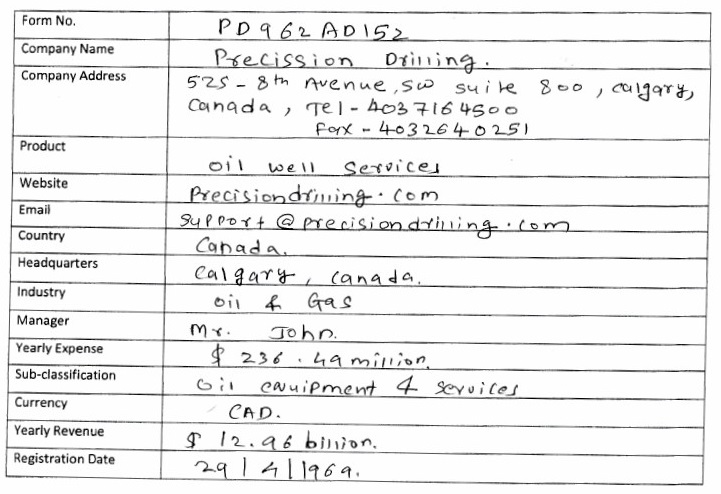 Form No. PD962AD152
Company Name Precission Drilling.
Company Address 525 - 8th Avenue, SW suite 800, calgary,
Canada, Tel - 4037164500
Fax - 4032640251
Product oil well services
Website Precisiondrilling.com
Email support@precisiondrilling.com
Country Canada.
Headquarters Calgary, Canada.
Industry oil & Gas
Manager Mr. John.
Yearly Expense $ 236.49 million.
Sub-classification Oil equipment & services
Currency CAD.
Yearly Revenue $ 12.96 billion.
Registration Date 29/4/1969.